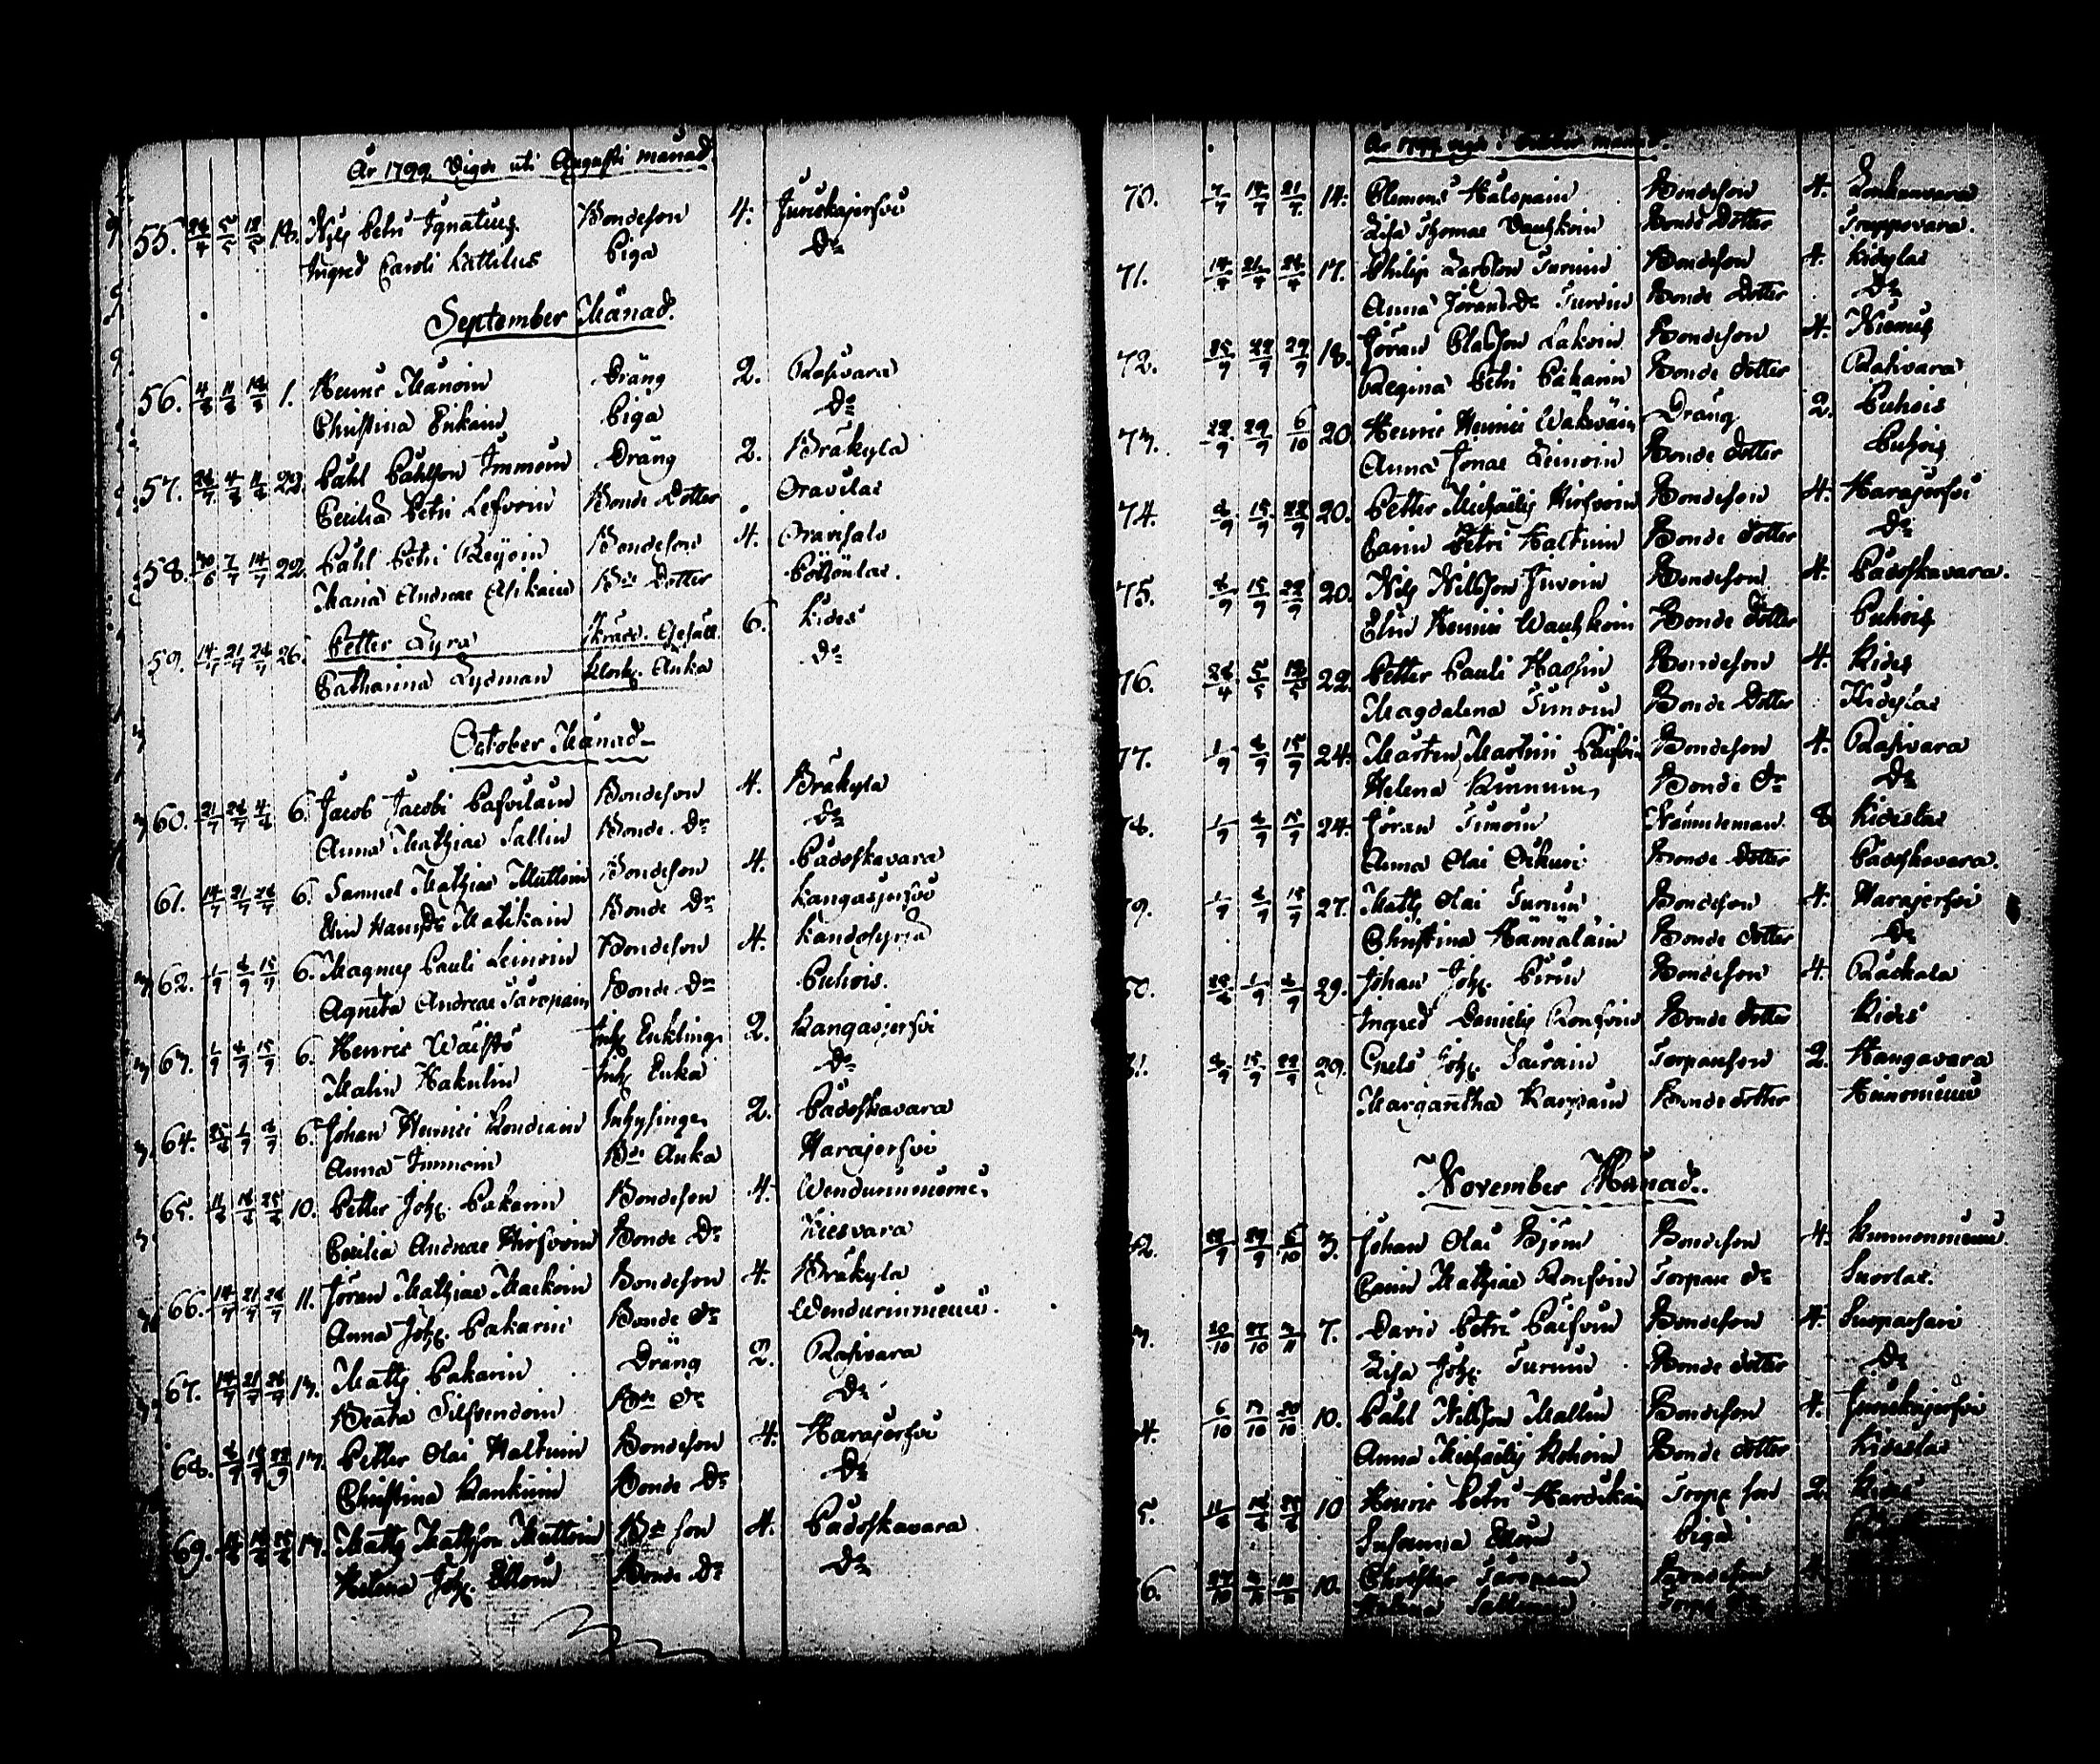 År 1799 Vigde uti Augusti månad
55. 28/4 5/5 12/5 18. Nils Petri Ignatius Bondeson 4. Juurikajerfvi
Ingred Caroli Kattilus Piga Do
September Månad.
56. 4/8 11/8 18/8 1. Henric Manoin Dräng 2. Rasivara
Christina Pirhain Piga Do
57. 28/7 4/8 11/8 22. Påhl Påhlsson Immoin Dräng 2. Bråkyla
Cecilia Petri Lefvoin Bonde Dotter Oravilax
58. 30/6 7/7 14/7 22. Påhl Petri Reijoin Bondeson 4. Oravisalo
Maria Andreae Asikain Bde Dotter Potzönlax.
59. 14/7 21/7 28/7 26. Petter Lyra Skrädd. Gesäll 6. Kides
Catharina Lydman Klock. Änka Do
October Månad
60. 21/7 28/7 4/8 6. Jacob Jacobi Pasoilain Bondeson 4. Bråkyla
Anna Mathiae Sallin Bonde Dr Do
61. 14/7 21/7 28/7 6. Samuel Mathiae Muttoin Bondeson 4. Padoskavara
Elin Hansdr Matikain Bonde Dr Kangasjerfvi
62. 1/9 8/9 15/9 6. Magnus Pauli Leinoin Bondeson 4. Kandosyrjä
Agneta Andreae Saropain Bonde Dr Puhois.
63. 1/9 8/9 15/9 6. Henric Waistö Inh. Enkling 2. Kangasjerfvi
Malin Hakulin Inh. Enka Do
64. 25/8 1/9 8/9 6. Johan Henrici Kondiain Inhysinge 2. Padoskavara
Anna Immoin Bde Änka Harajerfvi
65. 11/8 18/8 25/8 10. Petter Joh. Pakarin Bondeson 4. Wendurinniemi.
Cecilia Andreae Hirfvoin Bonde Dr Kiesvara
66. 14/7 21/7 28/7 11. Jöran Mathiae Mackoin Bondeson 4. Bråkyla
Anna Joh. Pakarin Bonde Dr Wendurinniemi.
67. 14/7 21/7 28/7 13. Matts Pakarin Dräng 2. Rasivara
Beata Silfvendoin Bde Dr Do
68. 8/9 15/9 22/9 13. Petter Olai Haltuin Bondeson 4. Harajerfvi
Christina Kankuin Bonde Dr Do
69. 13. Matts Mattsson Muttoin Bde son 4. Padoskavara
Helena Joh. Ekloin Bonde Dr Do
År 1799 vigde i October månad.
70. 7/7 14/7 21/7 14. Clemens Halopain Bondeson 4.
Lisa Thomae Vauhkoin Bonde Dotter
71. 14/7 21/7 28/7 17. Philip Larsson Turuin Bondeson 4. Kideslax
Anna Jöransdr Turuin Bonde Dotter Do
72. 15/9 22/9 29/9 18. Jöran Classon Lakoin Bondeson 4. Niemis
Regina Petri Pakarin Bonde Dotter Rasivara
73. 22/9 29/9 6/10 20. Henric Henrici Wäkeväin Dräng 2. Puhois
Anna Jonae Leinoin Bonde Dotter Puhois
74. 8/9 15/9 22/9 20. Petter Michaelis Hirfvoin Bondeson 4. Harajerfvi
Carin Petri Haltuin Bonde Dotter Do
75. 8/9 15/9 22/9 20. Nils Nilsson Juvoin Bondeson 4. Padoskavara.
Elin Henrici Wauhkoin Bonde Dotter Puhois
76. 28/4 5/5 12/5 22. Petter Pauli Hassin Bondeson 4. Kides
Magdalena Simoin Bonde Dotter Kideslax
77. 1/9 8/9 15/9 24. Mårten Martini Päifvin Bondeson 4. Rasivara
Helena Kinnunin Bonde Dr Do
78. 1/9 8/9 15/9 24. Jöran Simoin Nämndeman 8. Kideslax
Anna Olai Oikari Bonde Dotter Padoskavara.
79. 1/9 8/9 15/9 27. Matts Olai Turuin Bondeson 4. Harajerfvi
Christina Hämäläin Bonde Dotter Do
80. 25/8 1/9 8/9 29. Johan Joh. Pirin Bondeson 4. Räckala
Ingred Danielis Ronfvin Bonde Dotter Kides
81. 8/9 15/9 22/9 29. Enels Joh. Sairain Torpareson 2. Hangavara
Margaretha Karpain Bonde dotter Heinoniemi
November Månad.
82. 22/9 29/9 6/10 3. Johan Olai Björn Bondeson 4. Kunnonniemi
Carin Mathiae Ronfvin Torpare Dr Suorlax.
20/10 27/10 3/11 7. David Petri Päifvin Bondeson 4. Suoparsari
Lisa Joh. Turuin Bonde Dotter Do
6/10 13/10 20/10 10. Påhl Nilsson Mallin Bondeson 4. Juurikajerfvi
Anna Michaelis Kohoin Bonde dotter Kideslax
5. 10 Henric Petri Harvikain Torp. son 2. Kides
Susanna Ekloin Piga
6. 10. Christer Suropain Bondeson
Helena